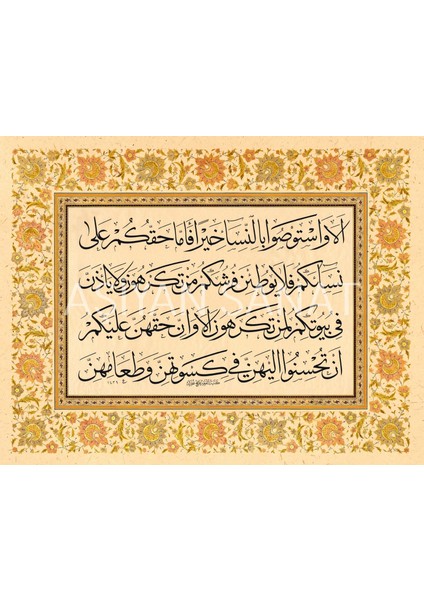 الا واستوصوا بالنسا خيرا فاما حقكم على
نسائكم فلا يوطئن فرشكم من تكرهون ولا ياذن
في بيوتكم لمن تكرهون الا وان حقهن عليكم
ان تحسنوا اليهن في كسوتهن وطعامهن
ASİYAN SANAT